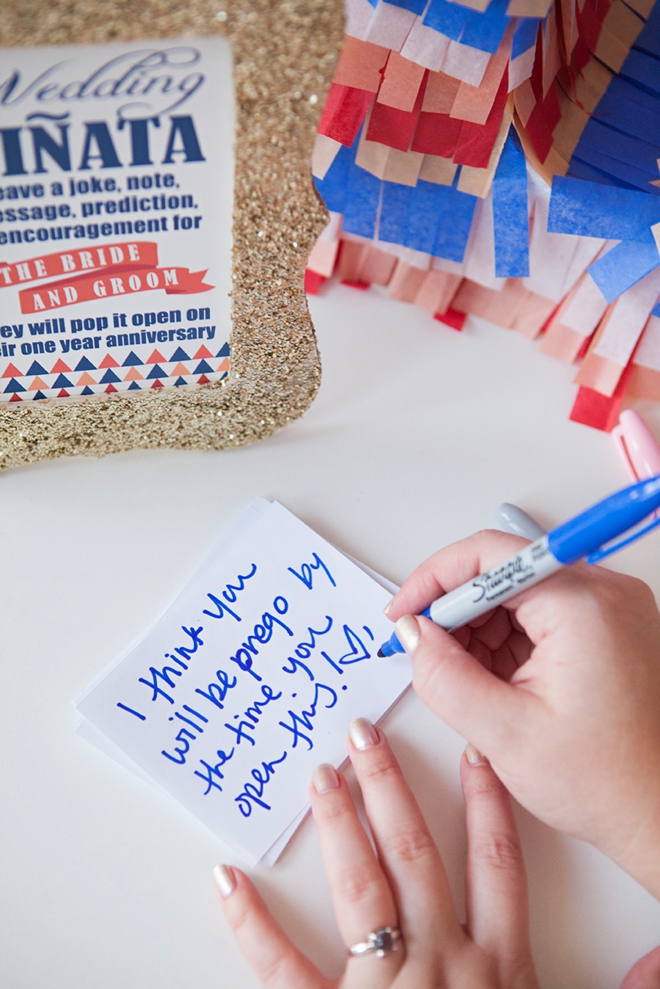 Wedding
IÑATA
eave a joke, note,
essage, prediction,
encouragement for
THE BRIDE
AND GROOM
ey will pop it open on
ir one year anniversary
I think you
will be prego by
the time you
open this!
Sharpie